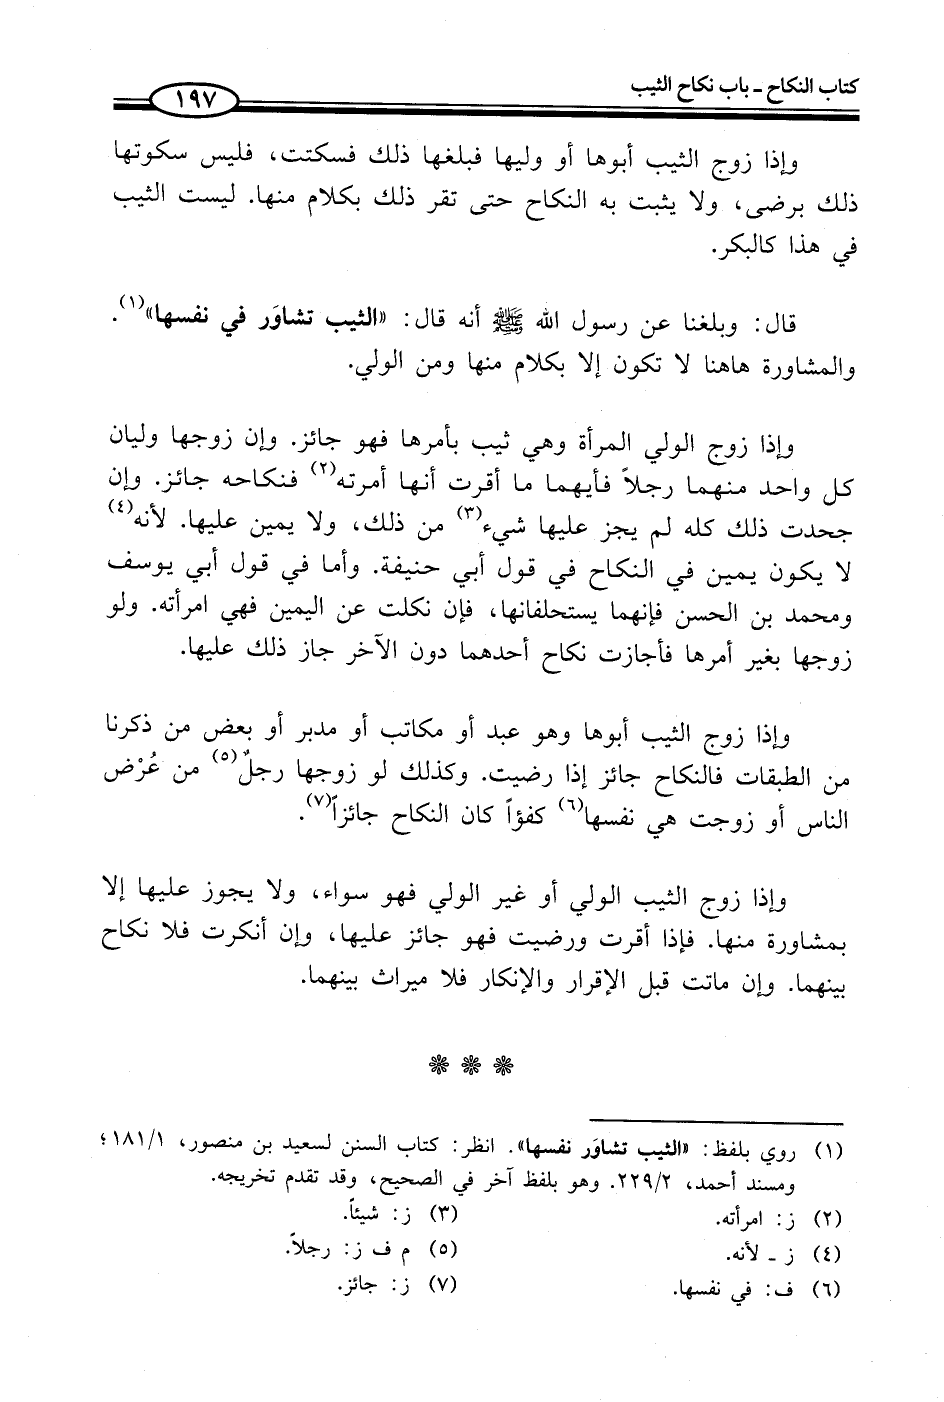 كتاب النكاح - باب نكاح الثيب
١٩٧
وإذا زوج الثيب أبوها أو وليها فبلغها ذلك فسكتت، فليس سكوتها
ذلك برضى، ولا يثبت به النكاح حتى تقر ذلك بكلام منها. ليست الثيب
في هذا كالبكر.
قال: وبلغنا عن رسول الله ﷺ أنه قال: «الثيب تشاوَر في نفسها»(١).
والمشاورة هاهنا لا تكون إلا بكلام منها ومن الولي.
وإذا زوج الولي المرأة وهي ثيب بأمرها فهو جائز. وإن زوجها وليان
كل واحد منهما رجلاً فأيهما ما أقرت أنها أمرته(٢) فنكاحه جائز. وإن
جحدت ذلك كله لم يجز عليها شيء(٣) من ذلك، ولا يمين عليها. لأنه(٤)
لا يكون يمين في النكاح في قول أبي حنيفة. وأما في قول أبي يوسف
ومحمد بن الحسن فإنهما يستحلفانها، فإن نكلت عن اليمين فهي امرأته. ولو
زوجها بغير أمرها فأجازت نكاح أحدهما دون الآخر جاز ذلك عليها.
وإذا زوج الثيب أبوها وهو عبد أو مكاتب أو مدبر أو بعض من ذكرنا
من الطبقات فالنكاح جائز إذا رضيت. وكذلك لو زوجها رجلٌ(٥) من عُرْض
الناس أو زوجت هي نفسها(٦) كفؤاً كان النكاح جائزاً(٧).
وإذا زوج الثيب الولي أو غير الولي فهو سواء، ولا يجوز عليها إلا
بمشاورة منها. فإذا أقرت ورضيت فهو جائز عليها، وإن أنكرت فلا نكاح
بينهما. وإن ماتت قبل الإقرار والإنكار فلا ميراث بينهما.
❊ ❊ ❊
(١) روي بلفظ: «الثيب تشاوَر نفسها». انظر: كتاب السنن لسعيد بن منصور، ١٨١/١؛
ومسند أحمد، ٢٢٩/٢. وهو بلفظ آخر في الصحيح، وقد تقدم تخريجه.
(٢) ز: امرأته.
(٣) ز: شيئاً.
(٤) ز - لأنه.
(٥) م ف ز: رجلاً.
(٦) ف: في نفسها.
(٧) ز: جائز.